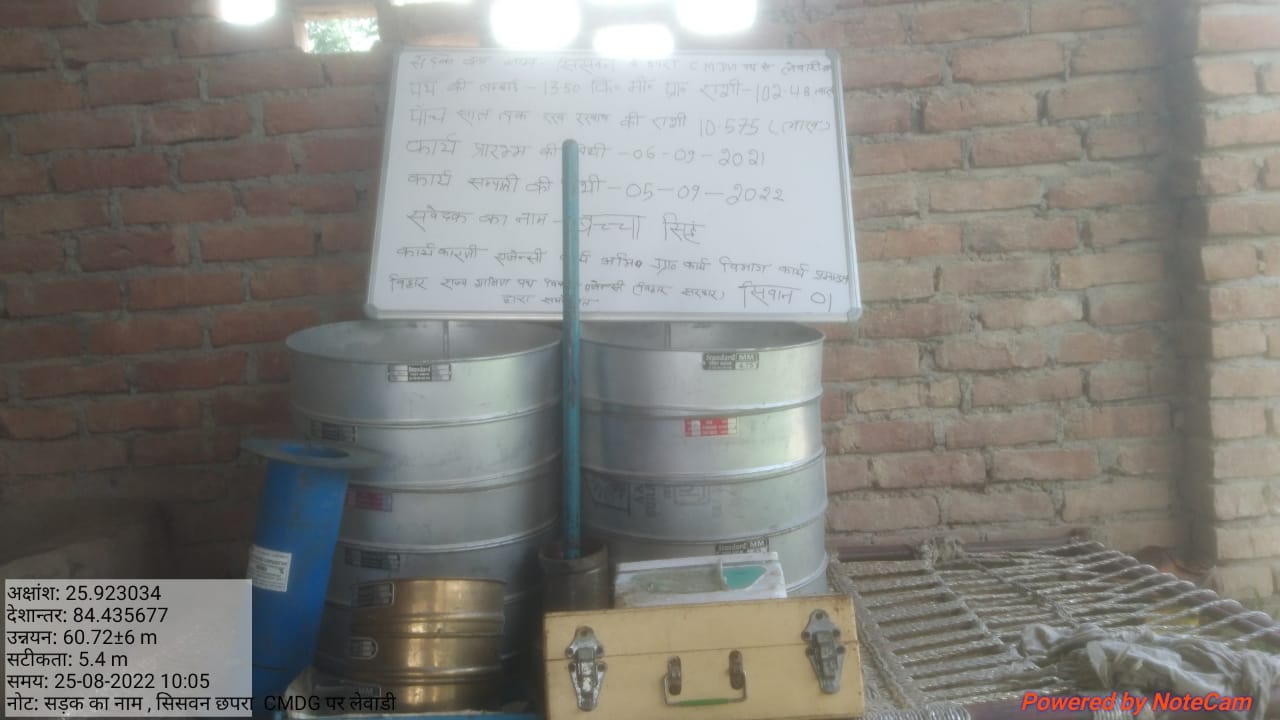 सड़क का नाम सिसवन छपरा CMDG पथ से लेवाड़ी
पथ की लम्बाई - 1350 कि० मी० प्रा० राशी - 102.48 लाख
पाँच साल तक रख रखाव की राशी 10.575 (लाख)
कार्य प्रारम्भ की थी - 06-09-2021
कार्य सम्पाती की थी - 05-09-2022
संवेदक का नाम - बच्चा सिहं
कार्यकारणी एजेन्सी कार्य अभि० ग्रा० कार्य विभाग कार्य
बिहार राज्य ग्रामिण पथ एजेन्सी (बिहार सरकार) सिवान 01
द्वारा
Standard
Standard MM
4.75
Standard MM
अक्षांश: 25.923034
देशान्तर: 84.435677
उन्नयन: 60.72±6 m
सटीकता: 5.4 m
समय: 25-08-2022 10:05
नोट: सड़क का नाम , सिसवन छपरा CMDG पर लेवाडी
Powered by NoteCam